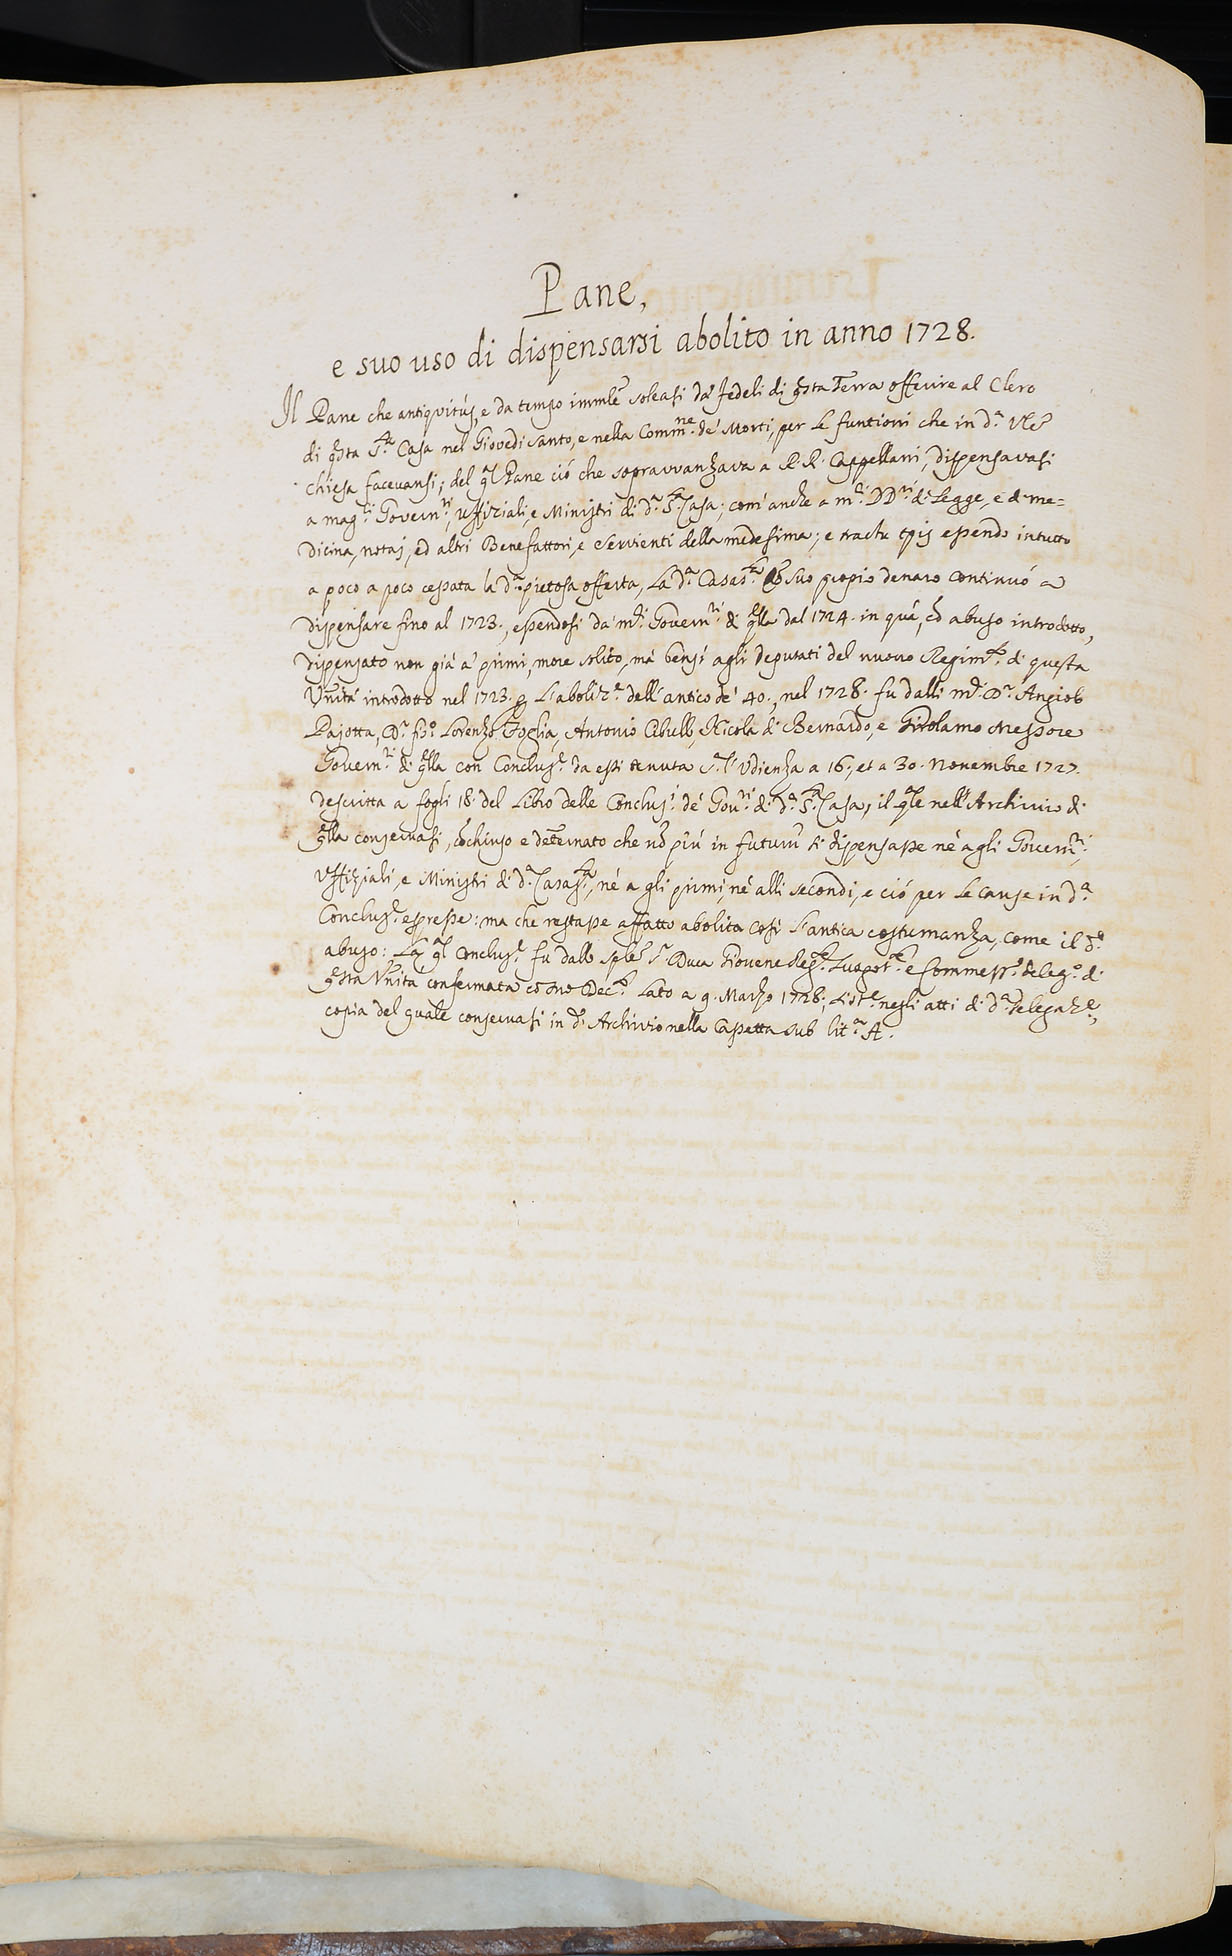 Pane,
e suo uso di dispensarsi abolito in anno 1728.
Il Pane che antiquitùs, e da tempo imm̃le soleasi da' fedeli di q̃sta Terra offerire al Clero
di q̃sta S.ta Casa nel Giovedì santo, e nella Comm.ne de' Morti, per le funtioni che in d.a
Chiesa facevansi; del q̃l Pane ciò che sopravvanzava a R.R. Cappellani, dispensavasi
a mag.ci Govern.ri, Uffiziali, e Ministri di d.a S.ta Casa; com'anche a m.ci DD.ri di Legge, e di me=
dicina, notaj, ed altri Benefattori, e servienti della medesima; e tractu tp̃is essendo intutto
a poco a poco cessata la d.a pietosa offerta, La d.a Casa S.ta suo propio denaro continuò a
dispensare fino al 1723., essendosi da' m.ci Govern.ri di q̃lla dal 1724. in quà, cõ abuso introdotto,
dispensato non già a' primi, more solito, mà bensì agli deputati del nuovo Regim.to di questa
Uñità introdotto nel 1723. p L'aboliz.e dell'antico de' 40., nel 1728. fu dalli m.ci D.r Angiolo
Pajotta, D.r fis.o Lorenzo Foglia, Antonio Cibullo, Nicola di Bernardo, e Girolamo Messore
Govern.ri di q̃lla con Conclus.e da essi tenuta S.a l'Udienza a 16., et a 30. Novembre 1727.
descritta a fogli 18. del Libro delle Conclus.i de' Gov.ri di d.a S.ta Casa, il q̃le nell'Archivio di
q̃lla conservasi, cõchiuso e determinato che nõ più in futurũ si dispensasse nè agli Govern.ri,
Uffiziali, e Ministri di d.a Casa S.ta, nè a gli primi, nè alli secondi, e ciò per le cause in d.a
Conclus.e espresse: ma che restasse affatto abolita così l'antica costumanza, come il d.o
abuso: La q̃l Conclus.e fu dallo Sple S.r Duca Giovene Reg.te e Commess.o deleg.o di
q̃sta Uñità confermata cõ suo Dec.to lato a 9. Marzo 1728; negli atti di d.a delegaz.e,
copia del quale conservasi in d.o Archivio nella Cassetta sub lit.a A.